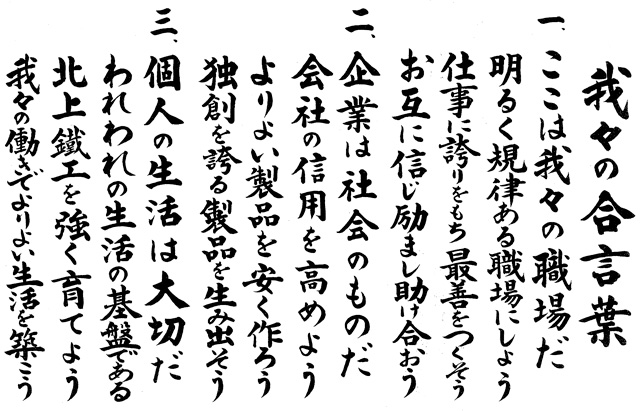 我々の合言葉
一、ここは我々の職場だ
明るく規律ある職場にしよう
仕事に誇りをもち最善をつくそう
お互に信じ励まし助け合おう
二、企業は社会のものだ
会社の信用を高めよう
よりよい製品を安く作ろう
独創を誇る製品を生み出そう
三、個人の生活は大切だ
われわれの生活の基盤である
北上鐵工を強く育てよう
我々の働きでよりよい生活を築こう